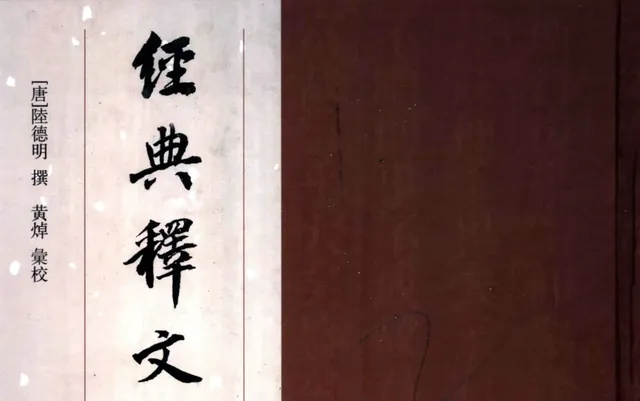 經典釋文
[唐]陸德明 撰 黄焯 彙校